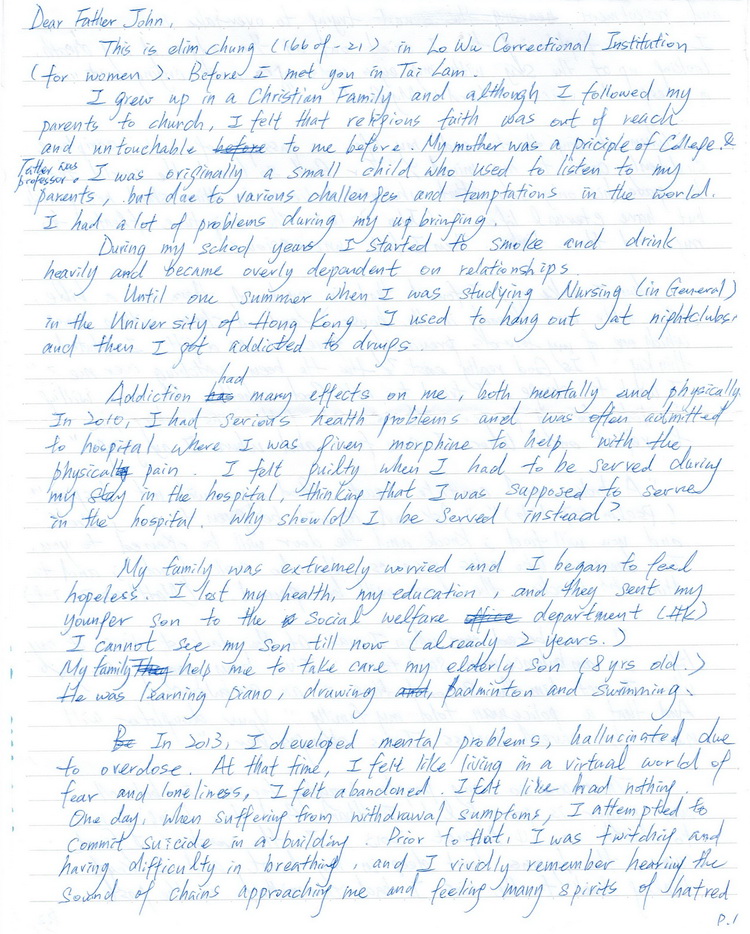 Dear Father John,
This is elim chung (166 of -21) in Lo Wu Correctional Institution
(for women). Before I met you in Tai Lam.
I grew up in a Christian Family and although I followed my
parents to church, I felt that religious faith was out of reach
and untouchable before to me before. My mother was a priciple of College. &
Father was
professor. I was originally a small child who used to listen to my
parents, but due to various challenges and temptations in the world.
I had a lot of problems during my up bringing.
During my school years I started to smoke and drink
heavily and became overly dependent on relationships.
Until one summer when I was studying Nursing (in General)
in the University of Hong Kong, I used to hang out at nightclubs,
and then I got addicted to drugs.
had
Addiction has many effects on me, both mentally and physically.
In 2010, I had serious health problems and was often admitted
to hospital where I was given morphine to help with the
physically pain. I felt guilty when I had to be served during
my stay in the hospital, thinking that I was supposed to serve
in the hospital. Why should I be served instead?
My family was extremely worried and I began to feel
hopeless. I lost my health, my education, and they sent my
younger son to the social welfare office department (HK)
I cannot see my son till now (already 2 years.)
My family They help me to take care my elderly son (8 yrs old.)
He was learning piano, drawing and, badminton and swimming.
In 2013, I developed mental problems, hallucinated due
to overdose. At that time, I felt like living in a virtual world of
fear and loneliness, I felt abandoned. I felt like had nothing.
One day, when suffering from withdrawal symptoms, I attempted to
commit suicide in a building. Prior to that, I was twitching and
having difficulty in breathing, and I vividly remember hearing the
sound of chains approaching me and feeling many spirits of hatred
P.1